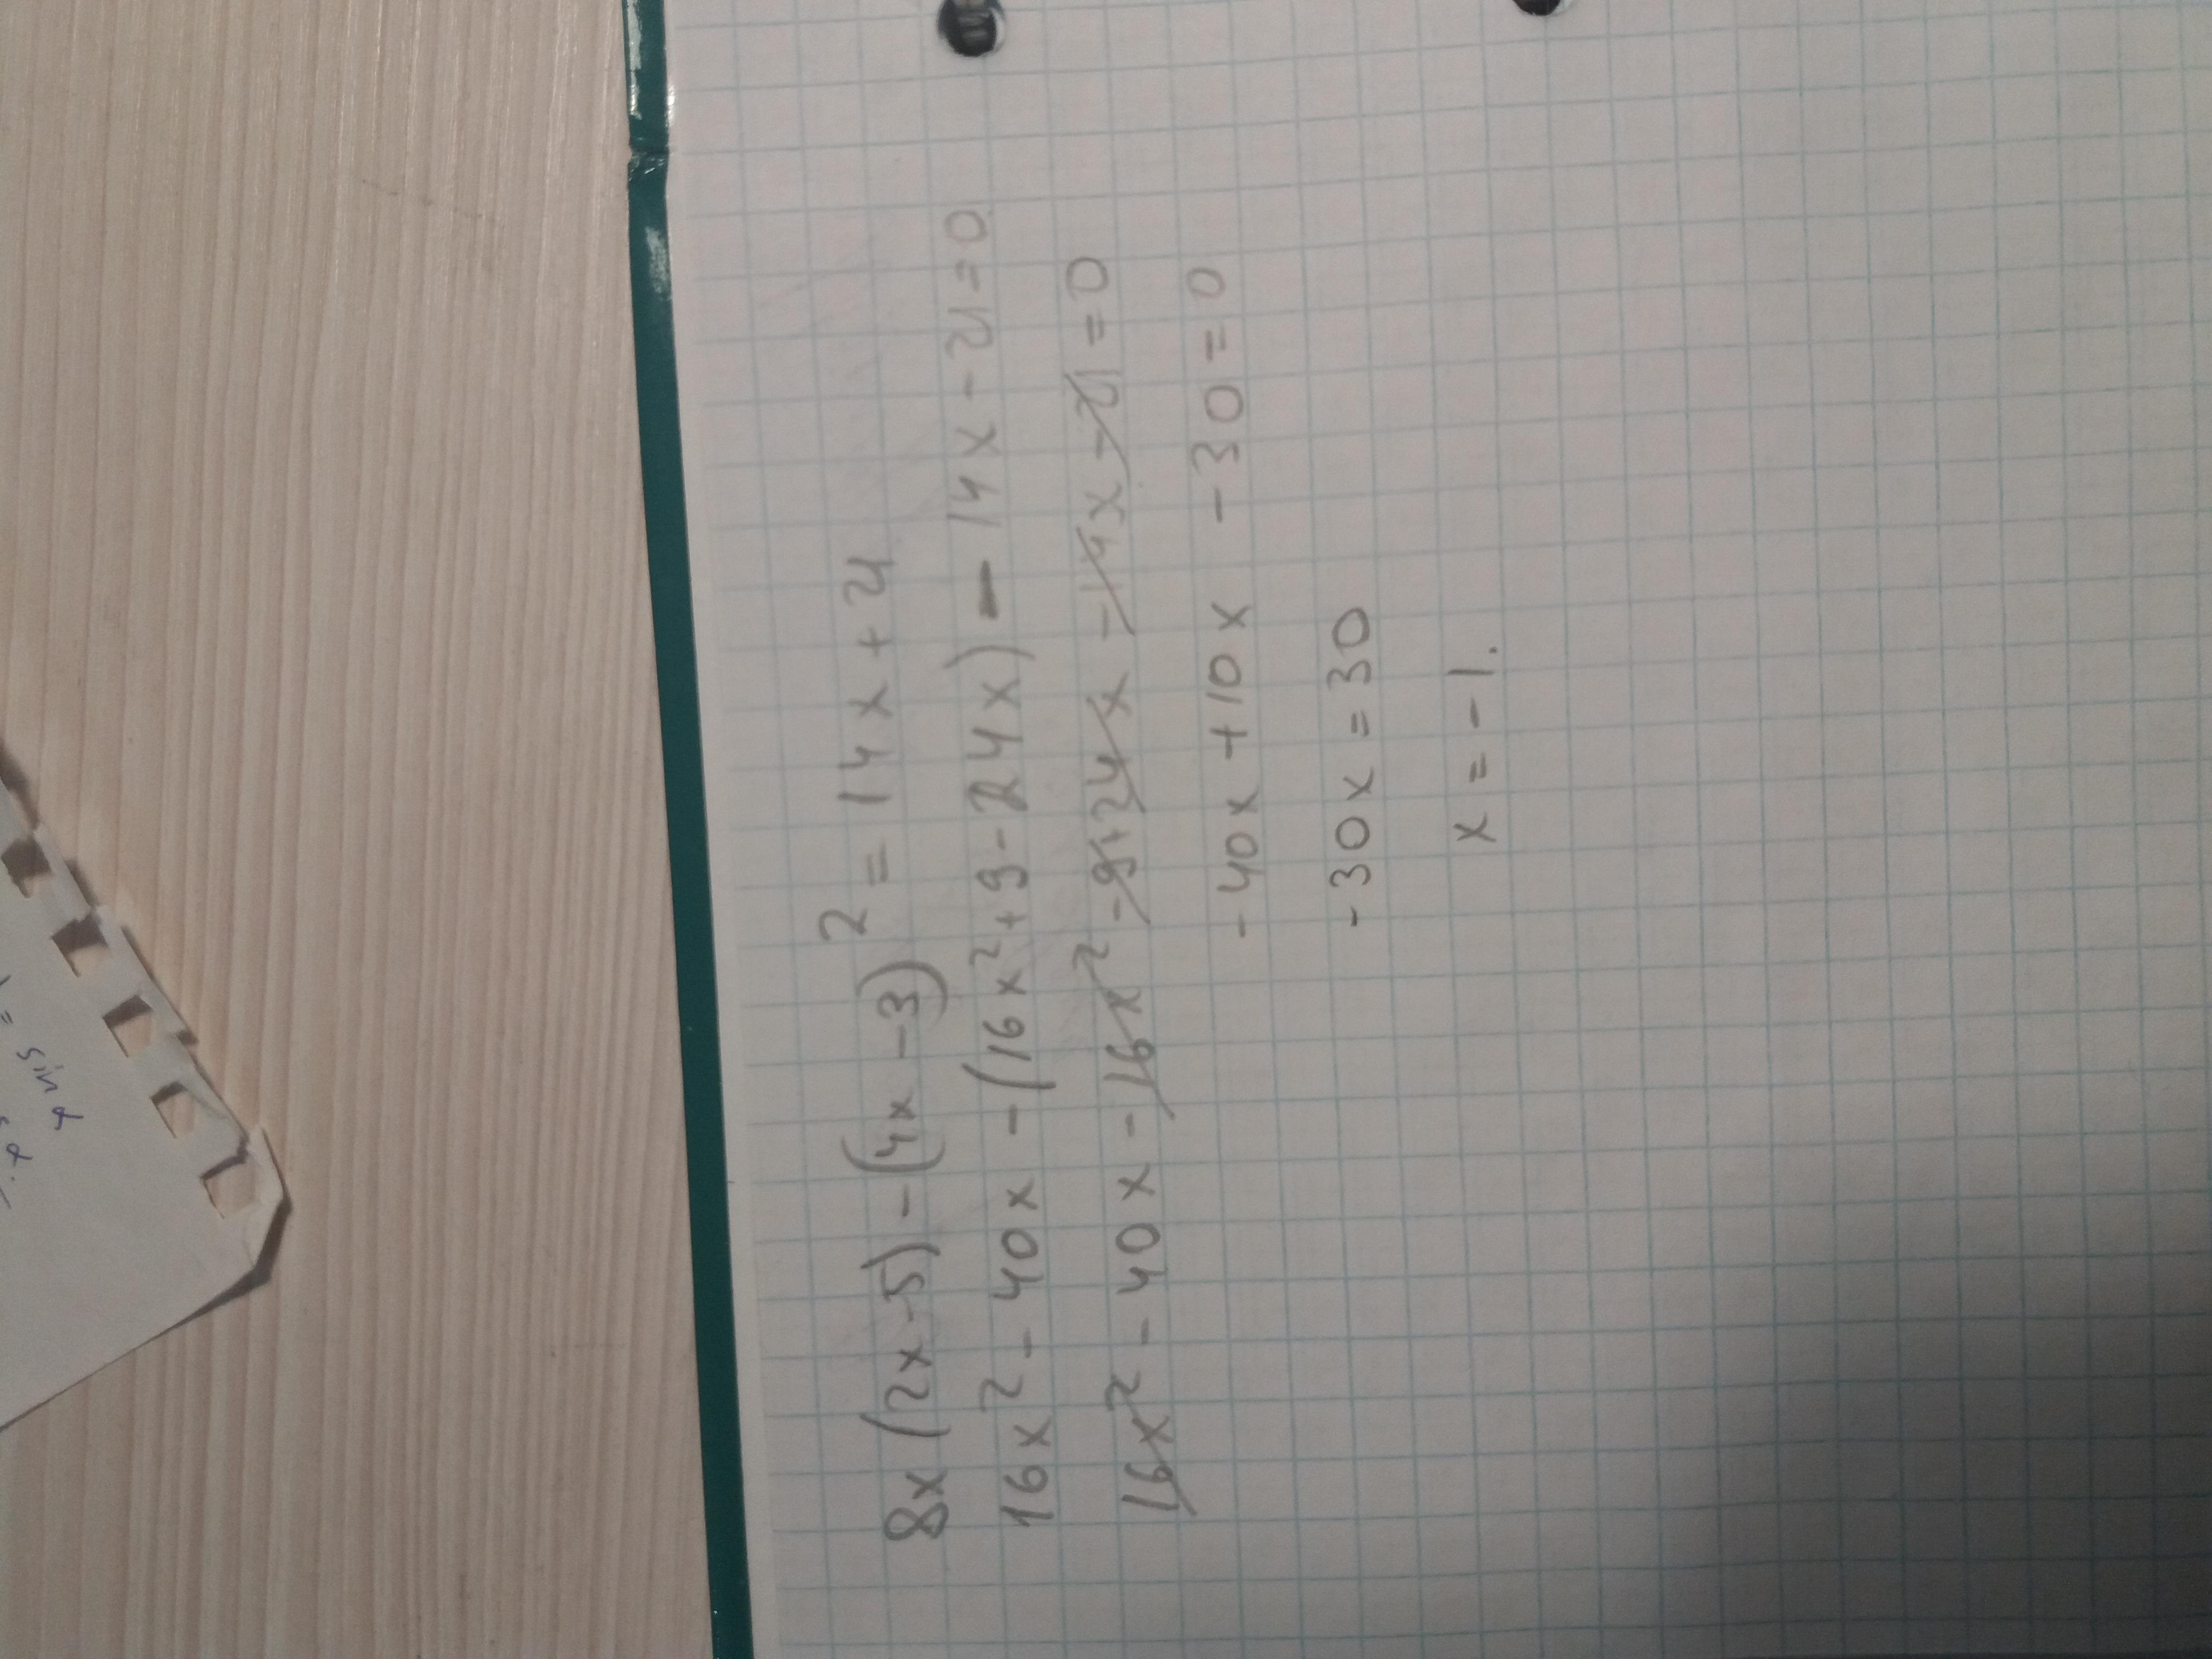 8x(2x-5)-(4x-3)² = 14x+21
16x² - 40x - (16x²+9-24x) - 14x - 21=0
16x² - 40x - 16x² - 9+24x - 14x - 21=0
-40x +10x - 30=0
-30x = 30
x = -1.
= sin α